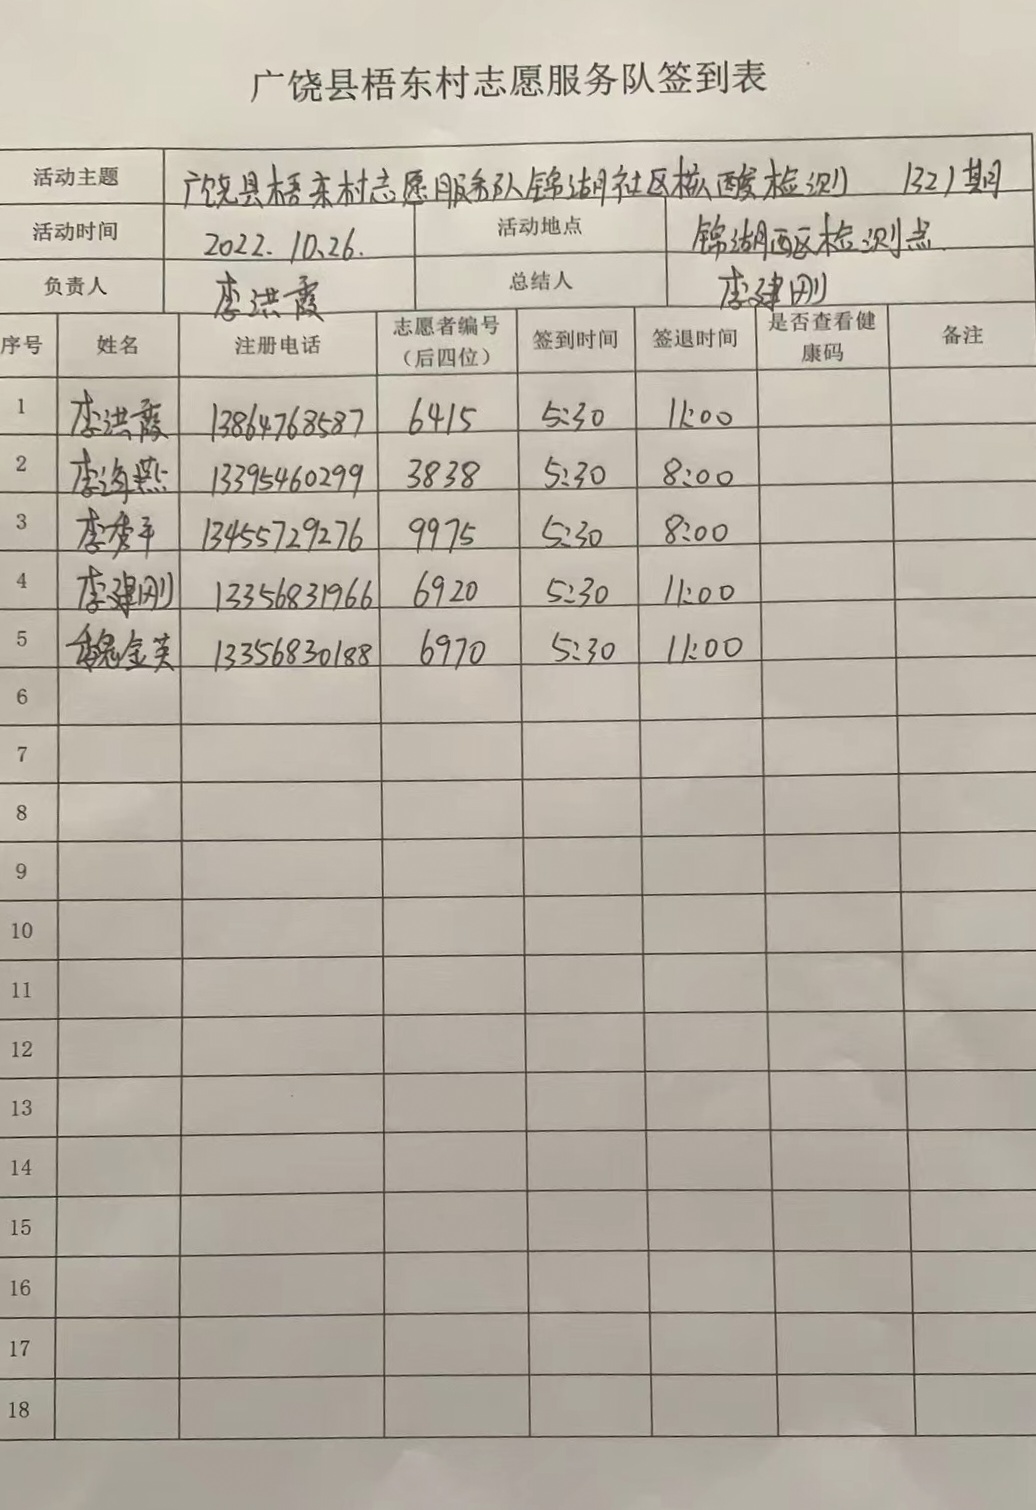 广饶县梧东村志愿服务队签到表
活动主题 广饶县梧东村志愿服务队锦湖社区核酸检测 1321期
活动时间 2022.10.26. 活动地点 锦湖西区检测点
负责人 李洪霞 总结人 李建刚
序号 姓名 注册电话 志愿者编号（后四位） 签到时间 签退时间 是否查看健康码 备注
1 李洪霞 13864768587 6415 5:30 11:00
2 李海燕 13395460299 3838 5:30 8:00
3 李秀平 13455729276 9975 5:30 8:00
4 李建刚 13356831966 6920 5:30 11:00
5 魏金英 13356830188 6970 5:30 11:00
6
7
8
9
10
11
12
13
14
15
16
17
18